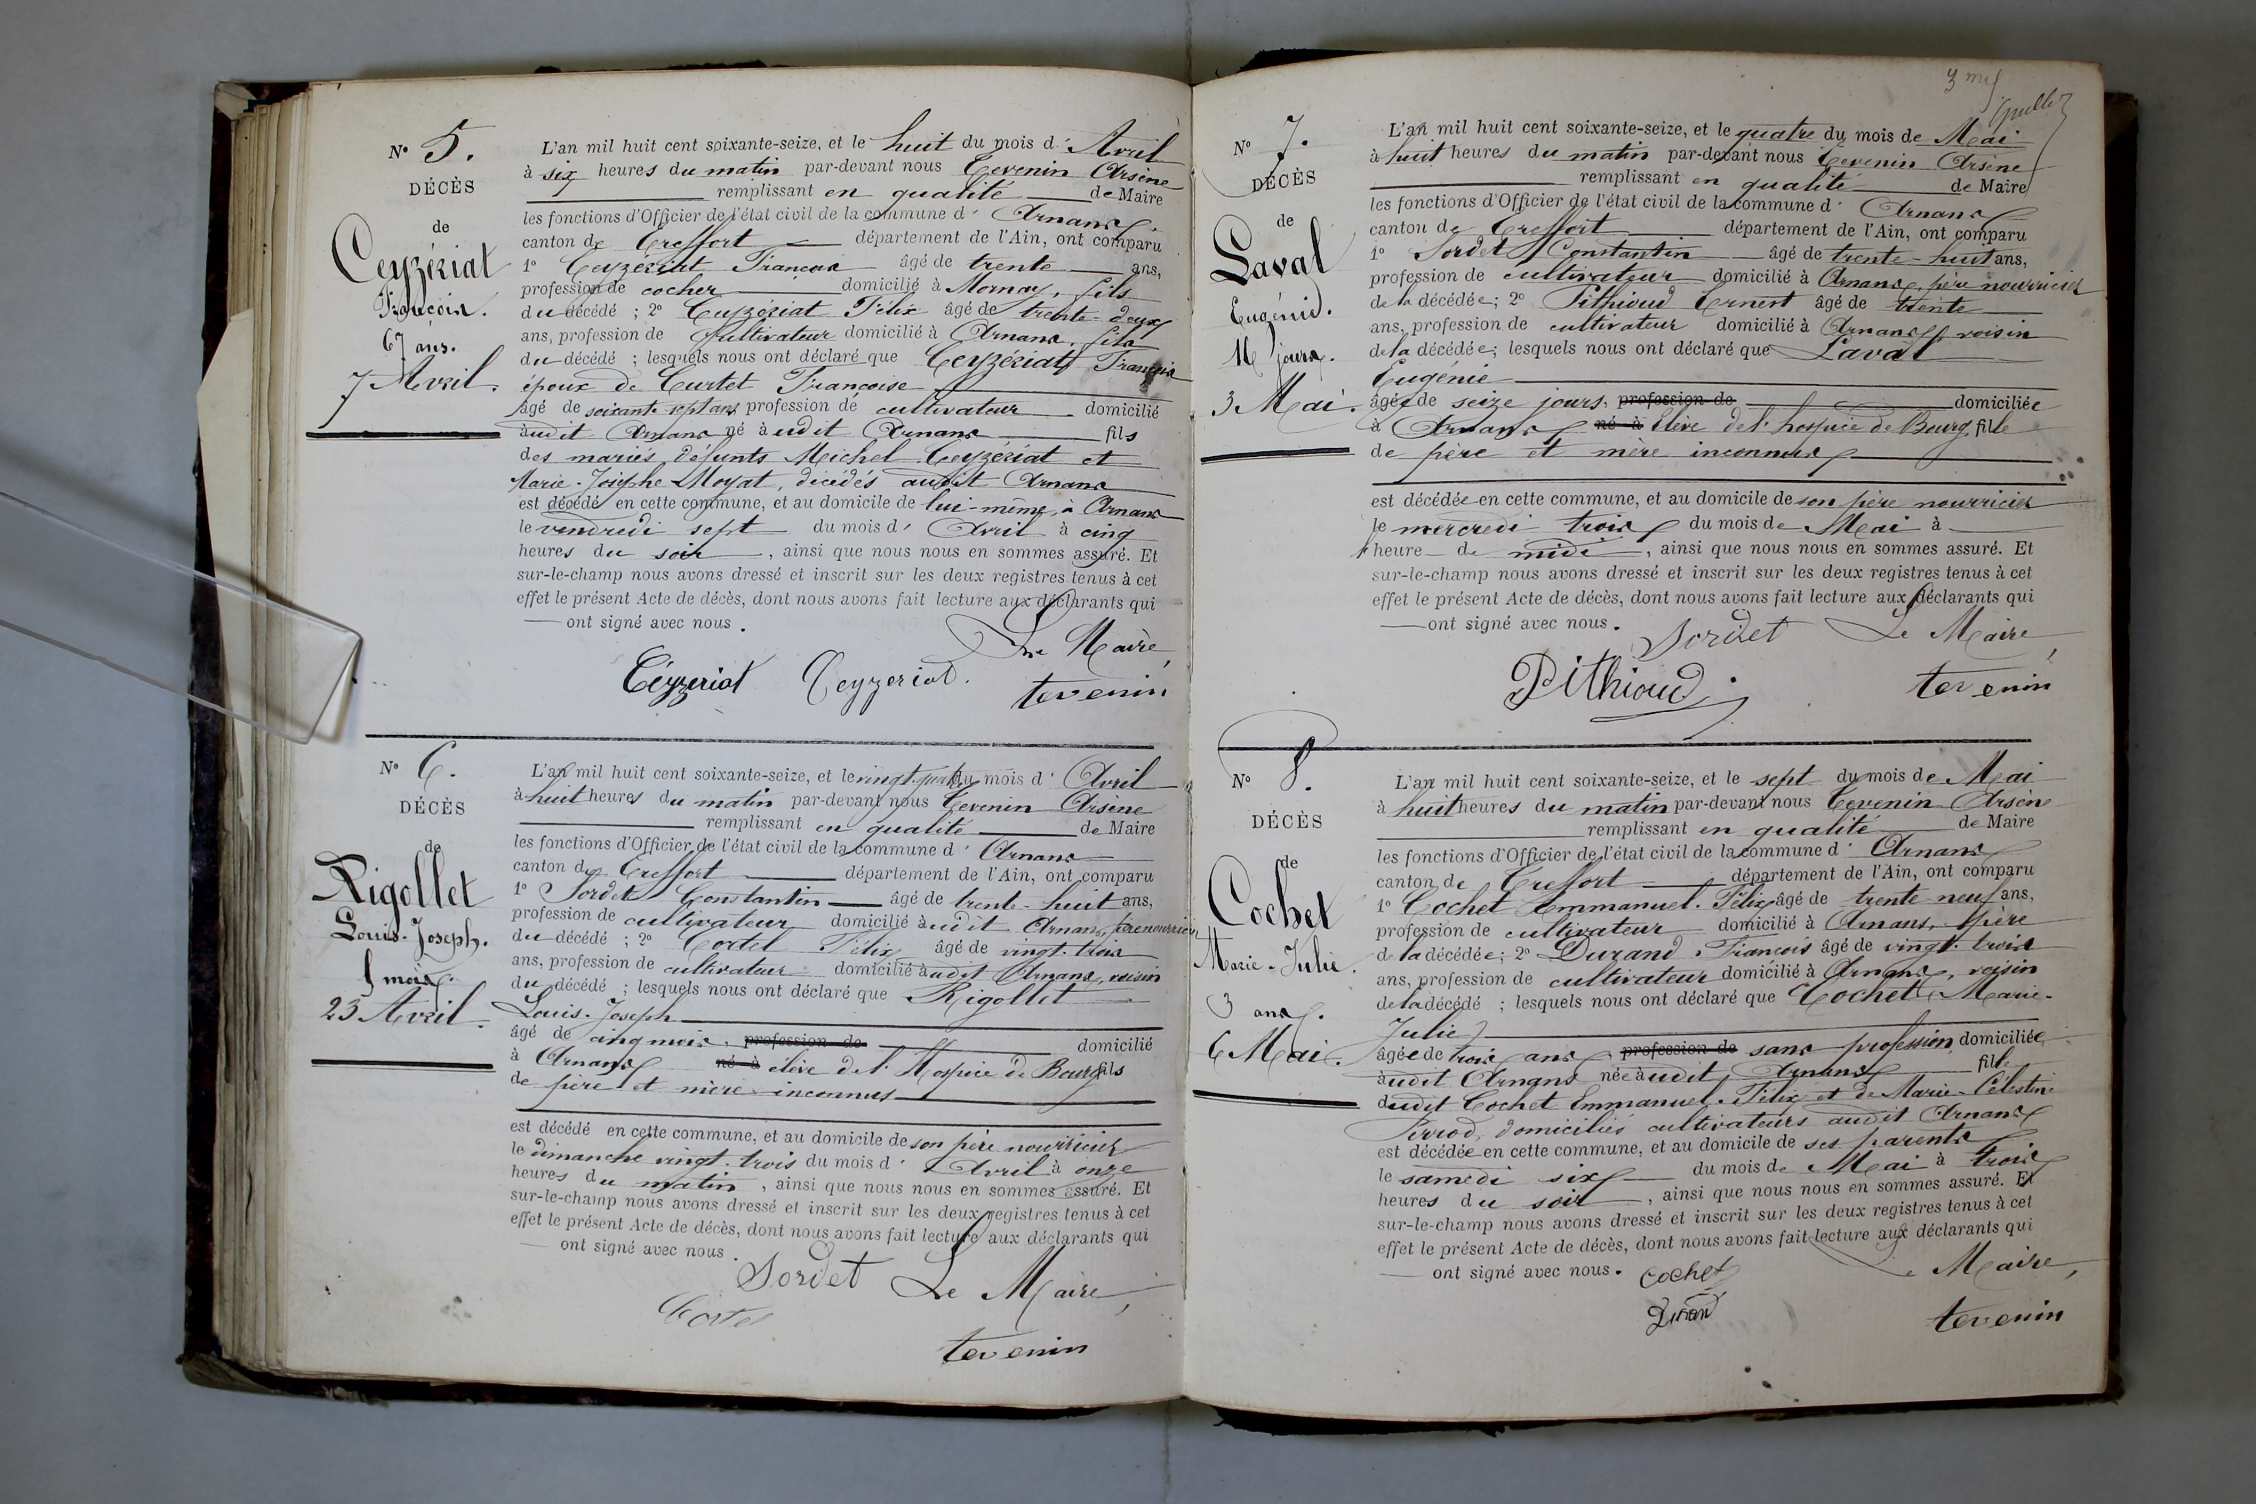 N° 5.
DÉCÈS
de
Ceyzériat
François.
67 ans.
7 Avril.
L'an mil huit cent soixante-seize, et le huit du mois d' Avril
à six heures du matin par-devant nous Tevenin Arsène
remplissant en qualité de Maire
les fonctions d'Officier de l'état civil de la commune d' Arnans
canton de Treffort département de l'Ain, ont comparu
1° Ceyzériat François âgé de trente ans,
profession de cocher domicilié à Mornay, fils
du décédé ; 2° Ceyzériat Félix âgé de trente-deux
ans, profession de cultivateur domicilié à Arnans, fils
du décédé ; lesquels nous ont déclaré que Ceyzériat François
époux de Curtet Françoise
âgé de soixante-sept ans profession de cultivateur domicilié
audit Arnans né à udit Arnans fils
des mariés défunts Michel Ceyzériat et
Marie-Josephe Moyat, décédés audit Arnans
est décédé en cette commune, et au domicile de lui-même, à Arnans
le vendredi sept du mois d' Avril à cinq
heures du soir, ainsi que nous nous en sommes assuré. Et
sur-le-champ nous avons dressé et inscrit sur les deux registres tenus à cet
effet le présent Acte de décès, dont nous avons fait lecture aux déclarants qui
ont signé avec nous.
Le Maire,
Céyzeriat Ceyzeriat. tevenin
N° 6.
DÉCÈS
de
Rigollet
Louis-Joseph.
5 mois.
23 Avril.
L'an mil huit cent soixante-seize, et le vingt-quatre du mois d' Avril
à huit heures du matin par-devant nous Tevenin Arsène
remplissant en qualité de Maire
les fonctions d'Officier de l'état civil de la commune d' Arnans
canton de Treffort département de l'Ain, ont comparu
1° Sordet Constantin âgé de trente-huit ans,
profession de cultivateur domicilié à udit Arnans, père nourricier
du décédé ; 2° Cortel Félix âgé de vingt-trois
ans, profession de cultivateur domicilié à udit Arnans, voisin
du décédé ; lesquels nous ont déclaré que Rigollet
Louis-Joseph
âgé de cinq mois, profession de domicilié
à Arnans né à élève de l'Hospice de Bourg fils
de père et mère inconnus
est décédé en cette commune, et au domicile de son père nourricier
le dimanche vingt-trois du mois d' Avril à onze
heures du matin, ainsi que nous nous en sommes assuré. Et
sur-le-champ nous avons dressé et inscrit sur les deux registres tenus à cet
effet le présent Acte de décès, dont nous avons fait lecture aux déclarants qui
ont signé avec nous.
Sordet Le Maire,
Cortel
tevenin
N° 7.
DÉCÈS
de
Laval
Eugénie.
16 jours.
3 Mai.
L'an mil huit cent soixante-seize, et le quatre du mois de Mai
à huit heures du matin par-devant nous Tevenin Arsène
remplissant en qualité de Maire
les fonctions d'Officier de l'état civil de la commune d' Arnans
canton de Treffort département de l'Ain, ont comparu
1° Sordet Constantin âgé de trente-huit ans,
profession de cultivateur domicilié à Arnans, père nourricier
de la décédée ; 2° Pithioud Ernest âgé de trente
ans, profession de cultivateur domicilié à Arnans, voisin
de la décédée ; lesquels nous ont déclaré que Laval
Eugénie
âgée de seize jours, profession de domiciliée
à Arnans né à élève de l'hospice de Bourg fille
de père et mère inconnus
est décédée en cette commune, et au domicile de son père nourricier
le mercredi trois du mois de Mai à
heure de midi, ainsi que nous nous en sommes assuré. Et
sur-le-champ nous avons dressé et inscrit sur les deux registres tenus à cet
effet le présent Acte de décès, dont nous avons fait lecture aux déclarants qui
ont signé avec nous.
Sordet Le Maire,
Pithioud tevenin
N° 8.
DÉCÈS
de
Cochet
Marie-Julie.
3 ans.
6 Mai.
L'an mil huit cent soixante-seize, et le sept du mois de Mai
à huit heures du matin par-devant nous Tevenin Arsène
remplissant en qualité de Maire
les fonctions d'Officier de l'état civil de la commune d' Arnans
canton de Treffort département de l'Ain, ont comparu
1° Cochet Emmanuel-Félix âgé de trente neuf ans,
profession de cultivateur domicilié à Arnans, père
de la décédée ; 2° Durand François âgé de vingt-trois
ans, profession de cultivateur domicilié à Arnans, voisin
de la décédé ; lesquels nous ont déclaré que Cochet Marie-
Julie
âgée de trois ans, profession de sans profession domiciliée
à udit Arnans née à udit Arnans fille
dudit Cochet Emmanuel-Félix et de Marie-Célestine
Perrod, domiciliés cultivateurs audit Arnans
est décédée en cette commune, et au domicile de ses parents
le samedi six du mois de Mai à trois
heures du soir, ainsi que nous nous en sommes assuré. Et
sur-le-champ nous avons dressé et inscrit sur les deux registres tenus à cet
effet le présent Acte de décès, dont nous avons fait lecture aux déclarants qui
ont signé avec nous. Cochet Le Maire,
Durand tevenin